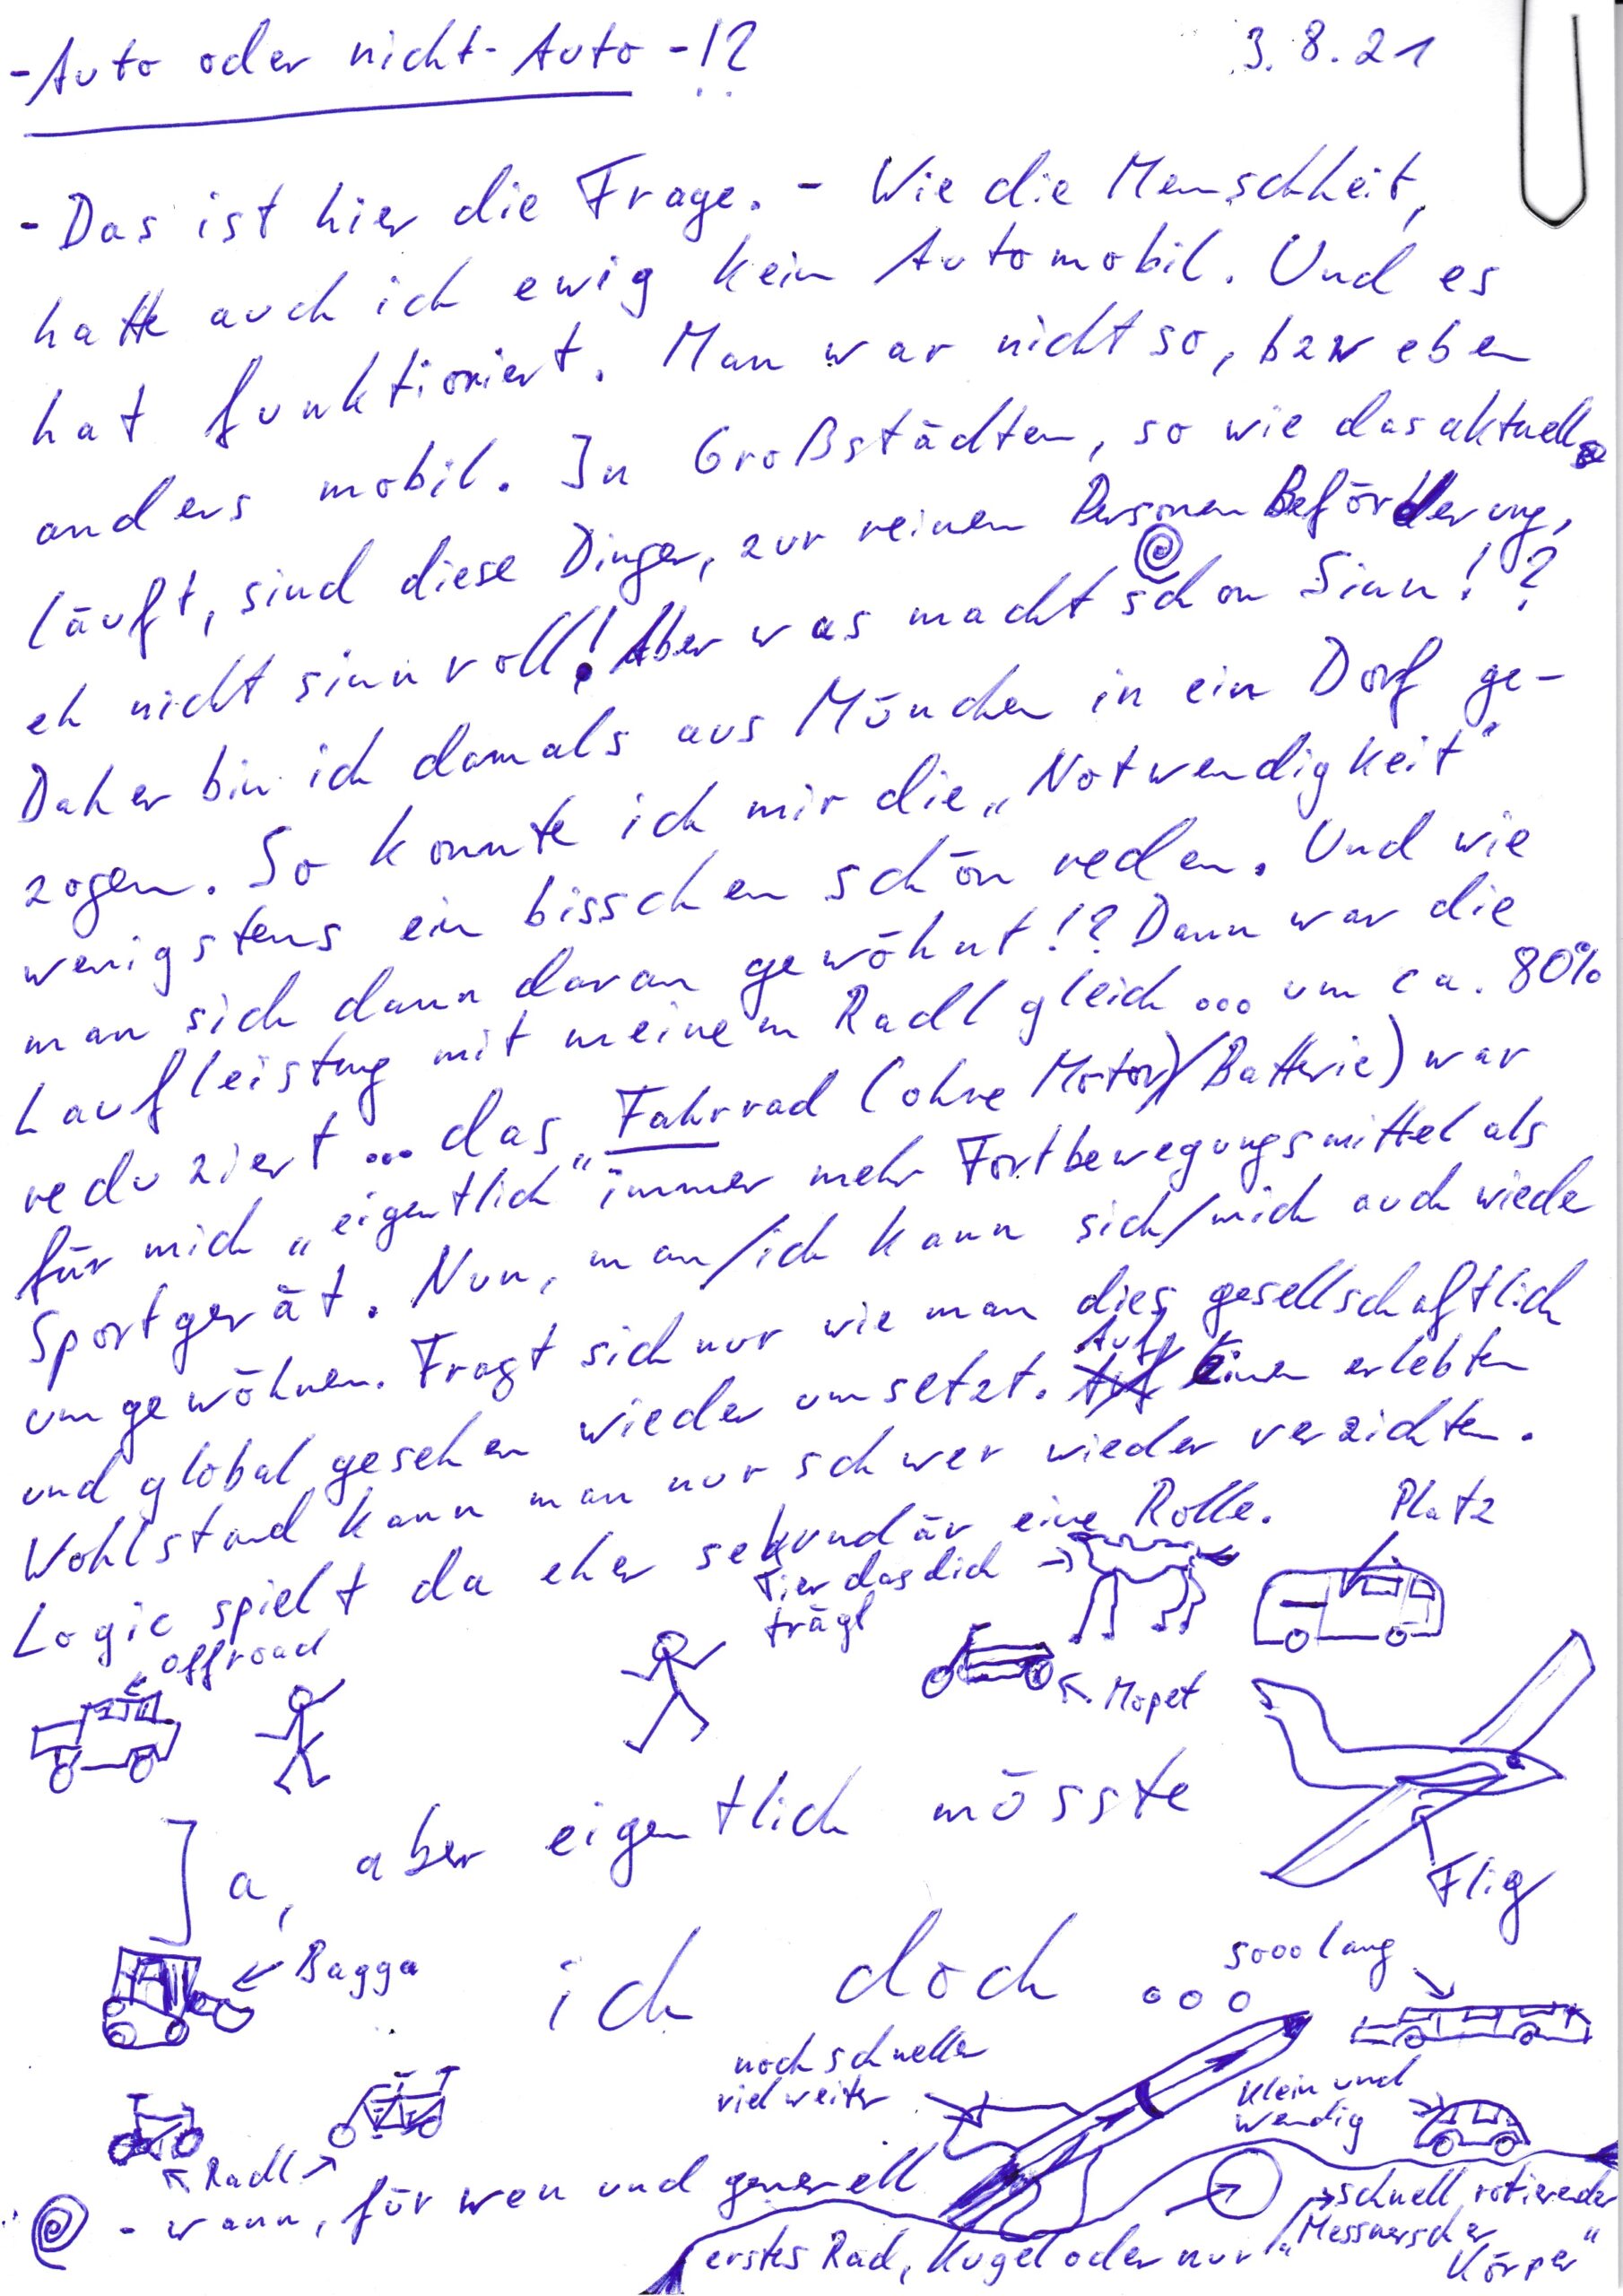 - Auto oder nicht - Auto - !?
3.8.21
- Das ist hier die Frage. - Wie die Menschheit,
hatte auch ich ewig kein Automobil. Und es
hat funktioniert. Man war nicht so, bzw eben
anders mobil. In Großstädten, so wie das aktuell
läuft, sind diese Dinger, zur reinen Personen Beförderung,
eh nicht sinnvoll! Aber was macht schon Sinn!?
Daher bin ich damals aus München in ein Dorf ge-
zogen. So konnte ich mir die „Notwendigkeit"
wenigstens ein bisschen schön reden. Und wie
man sich dann daran gewöhnt!? Dann war die
Laufleistung mit meinem Radl gleich ... um ca. 80%
reduziert ... das „Fahrrad (ohne Motor)/Batterie) war
für mich „eigentlich" immer mehr Fortbewegungsmittel als
Sportgerät. Nun, man/ich kann sich/mich auch wieder
umgewöhnen. Fragt sich nur wie man dies gesellschaftlich
und global gesehen wieder umsetzt. Auf Einen erlebten
Wohlstand kann man nur schwer wieder verzichten.
Logic spielt da eher sekundär eine Rolle.
Platz
Tier das dich
trägt
offroad
Mopet
Flig
Ja, aber eigentlich müsste
ich doch ...
Bagga
sooo lang
noch schneller
viel weiter
klein und
wendig
Radl
- wann, für wen und generell
schnell rotierender
erstes Rad, Kugel oder nur „Messnerscher
Körper"